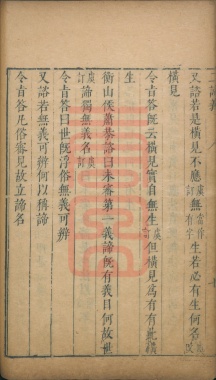 又諮若是橫見不應有生若必有生何名
橫見
令旨答既云橫見實自無生但橫見爲有有此橫
生
衡山侯蕭恭諮曰未審第一義諦既有義目何故世
諦獨無義名
令旨答曰世既浮俗無義可辨
又諮若無義可辨何以稱諦
令旨答凡俗審見故立諦名